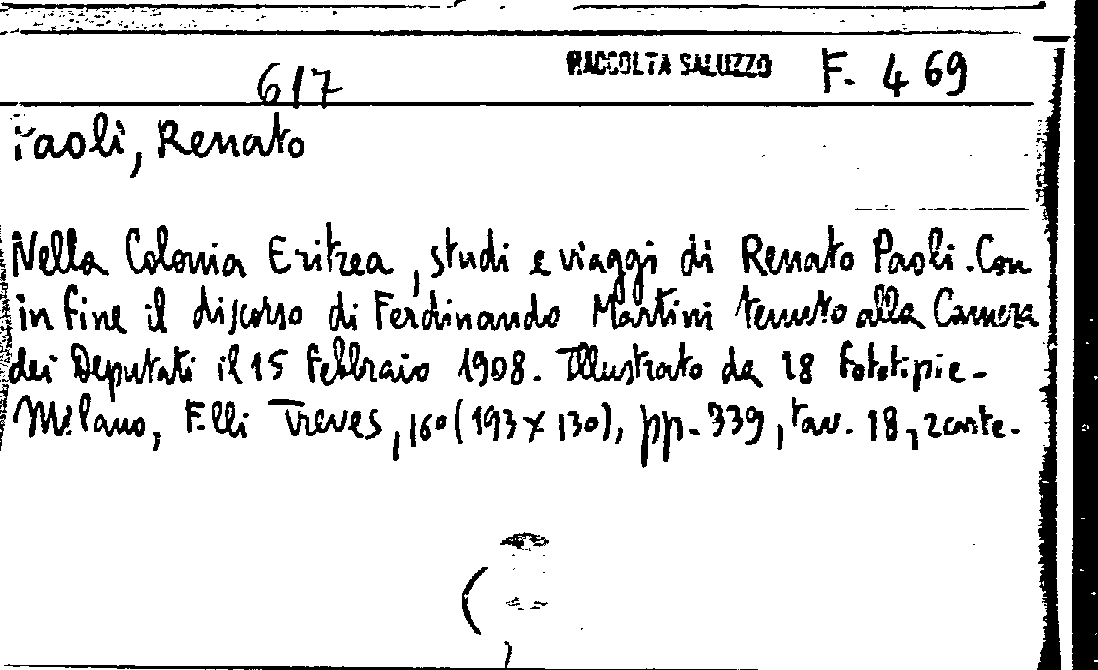 617 RACCOLTA SALUZZO F. 469
Paoli, Renato
Nella Colonia Eritrea, studi e viaggi di Renato Paoli. Con
in fine il discorso di Ferdinando Martini tenuto alla Camera
dei Deputati il 15 Febbraio 1908. Illustrato da 18 fototipie -
Milano, F.lli Treves, 16° (193 x 130), pp. 339, tav. 18, 2 carte.